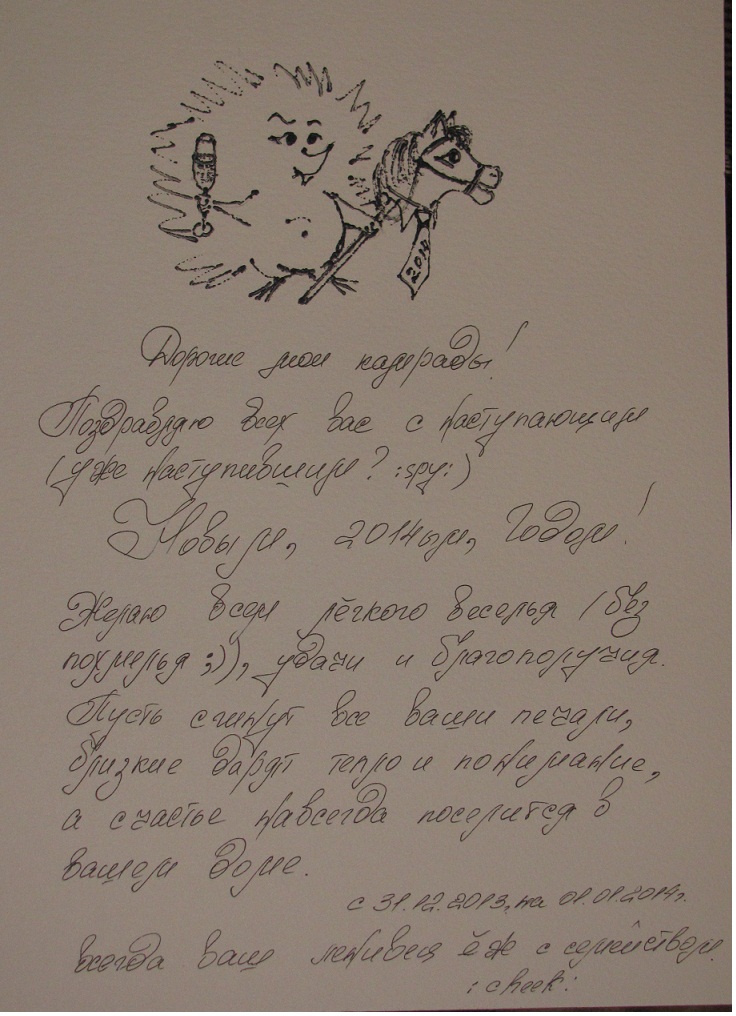 2014
Дорогие мои камрады!
Поздравляю всех вас с наступающим
(уже наступившим? :spy:)
Новым, 2014ым, Годом!
Желаю всем лёгкого веселья (без
похмелья ;)), удачи и благополучия.
Пусть сгинут все ваши печали,
близкие дарят тепло и понимание,
а счастье навсегда поселится в
вашем доме.
с 31.12.2013г. на 01.01.2014г.
всегда ваш ленивец ёж с семейством
:cheek: